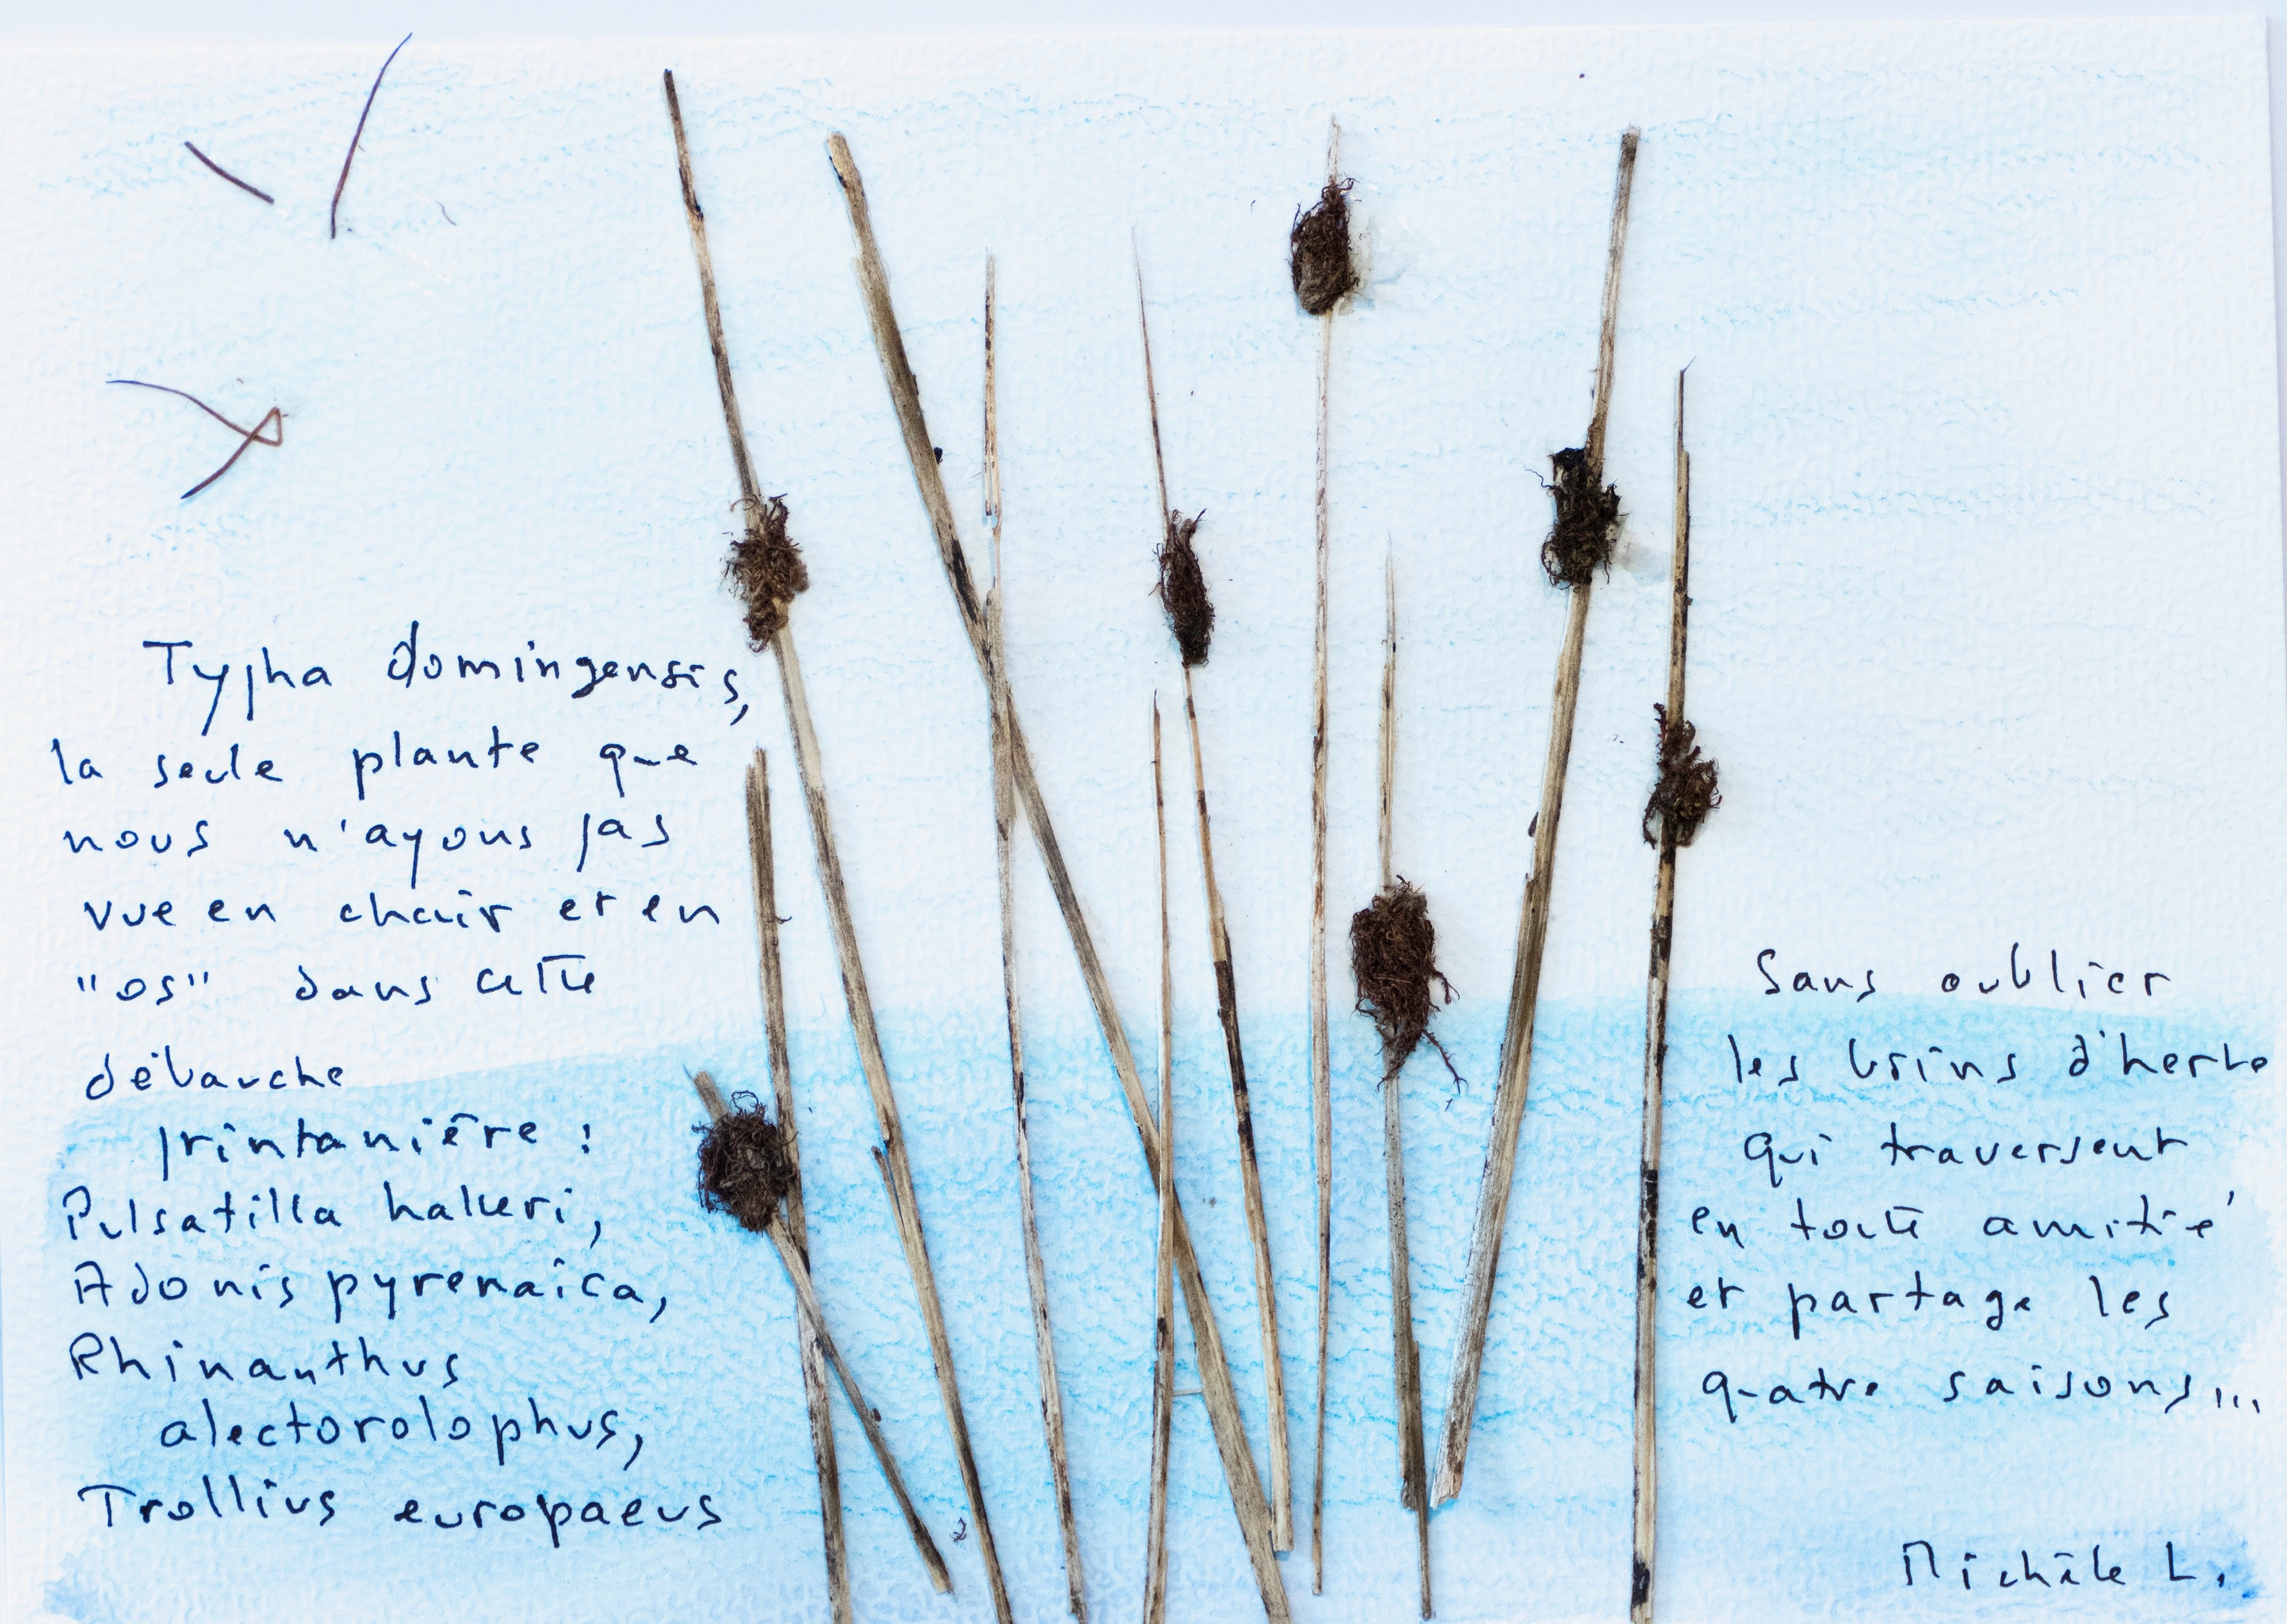 Typha domingensis,
la seule plante que
nous n'ayons pas
vue en chair et en
"os" dans cette
débauche
printanière :
Pulsatilla halleri,
Adonis pyrenaica,
Rhinanthus
alectorolophus,
Trollius europaeus
Sans oublier
les brins d'herbe
qui traversent
en toute amitié
et partage les
quatre saisons...
Michèle L.